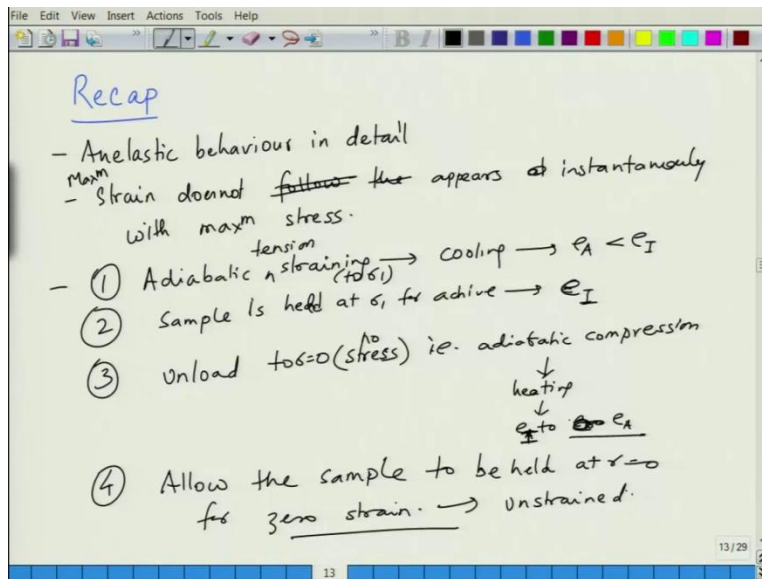 File Edit View Insert Actions Tools Help
Recap
- Anelastic behaviour in detail
Maxm
- Strain doesnot follow the appears at instantaneously
with maxm stress.
tension
- ① Adiabatic ∧ straining → cooling → eA < eI
(to σ1)
② Sample Is held at σ1 for achive → eI
no
③ Unload to σ=0 (stress) ie. adiabatic compression
↓
heating
↓
eI to eA
④ Allow the sample to be held at σ=0
for zero strain. → unstrained.
13/29
13